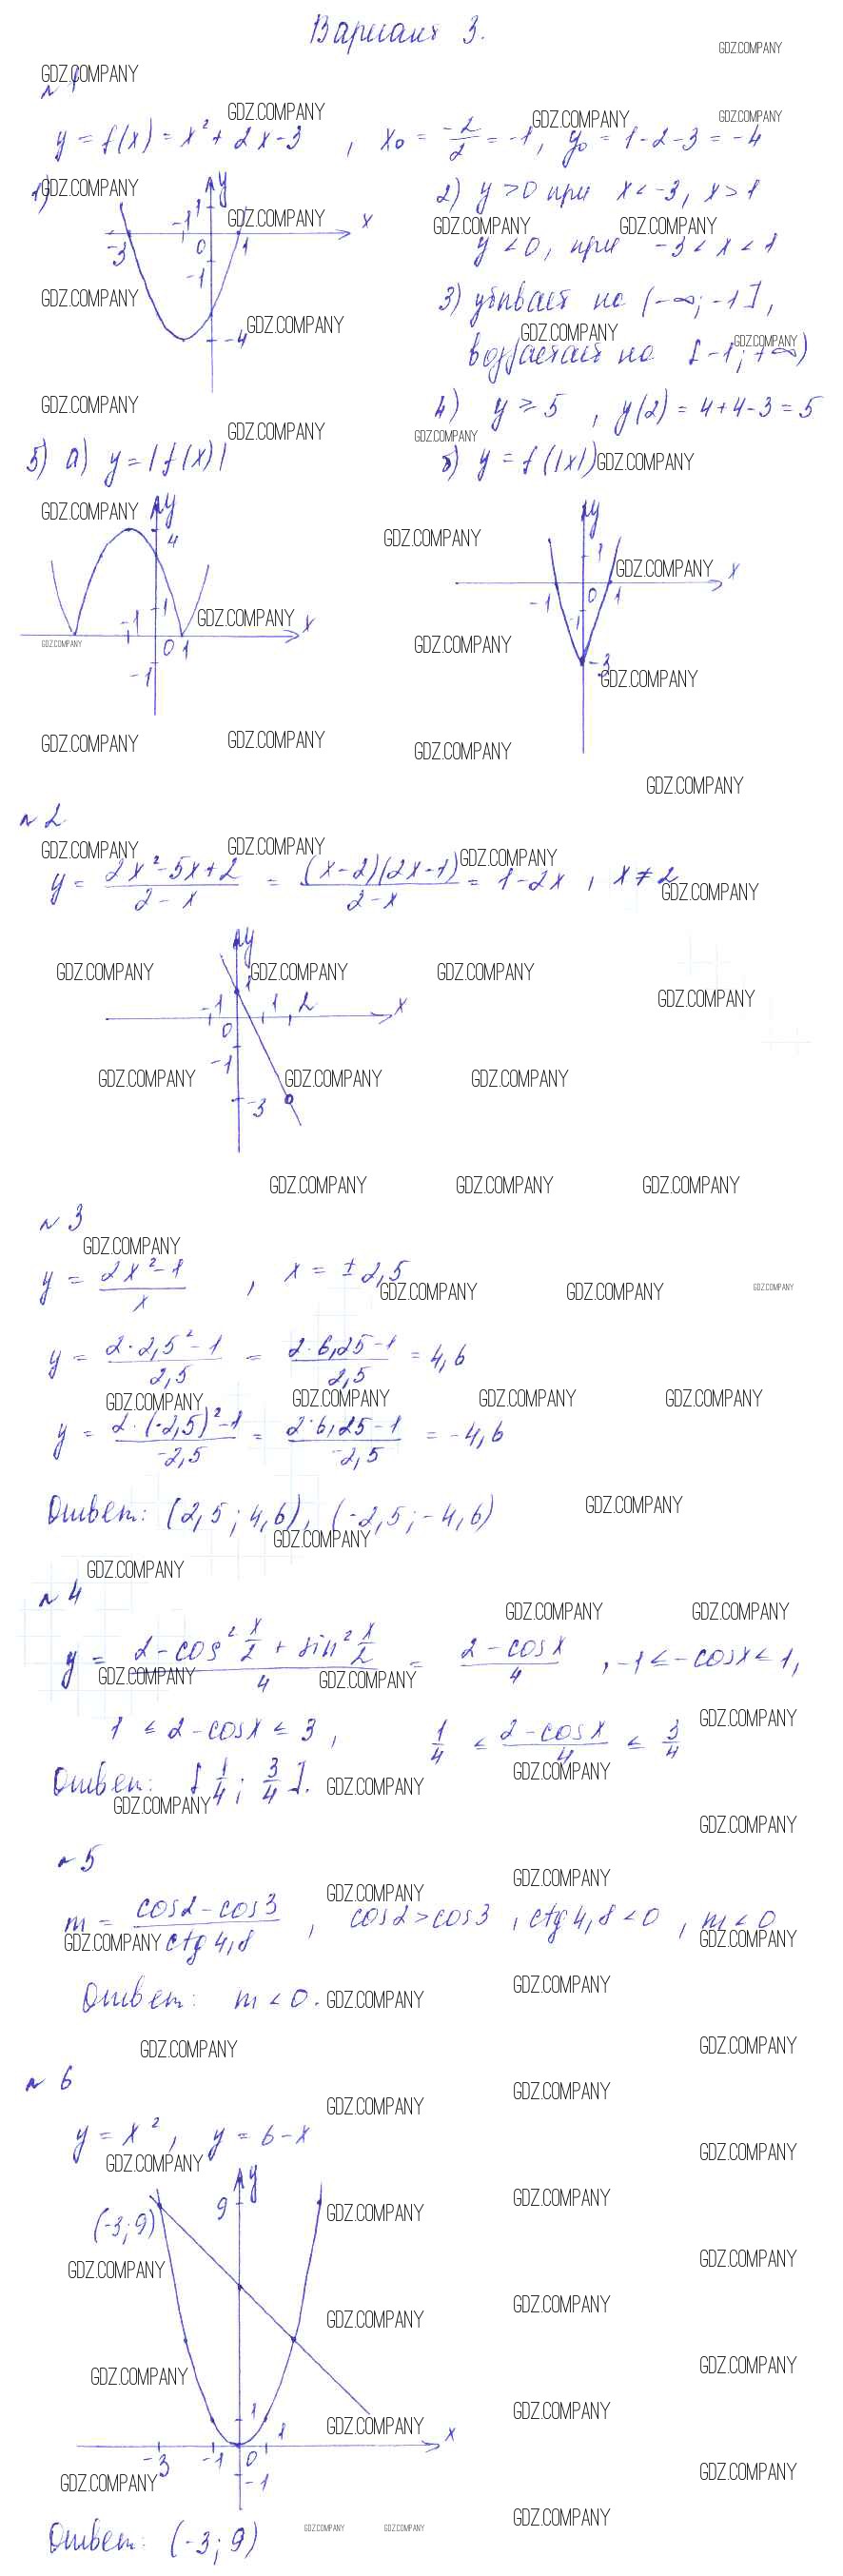 Вариант 3.
№1
y = f(x) = x² + 2x - 3 , x₀ = -2/2 = -1, y₀ = 1-2-3 = -4
1)
y
x
-3 -1 1 0 1
-1
-4
2) y > 0 при x < -3, x > 1
y < 0, при -3 < x < 1
3) убывает на (-∞; -1],
возрастает на [-1; +∞)
4) y ≥ 5 , y(2) = 4+4-3 = 5
5) а) y = |f(x)|
б) y = f(|x|)
y
4
1
-1 0 1 x
-1
y
1
-1 0 1 x
-1
-3
№2
y = (2x²-5x+2)/(2-x) = (x-2)(2x-1)/(2-x) = 1-2x , x ≠ 2
y
1
-1 0 1 2 x
-1
-3
№3
y = (2x²-1)/x , x = ±2,5
y = (2·2,5²-1)/2,5 = (2·6,25-1)/2,5 = 4,6
y = (2·(-2,5)²-1)/-2,5 = (2·6,25-1)/-2,5 = -4,6
Ответ: (2,5; 4,6), (-2,5; -4,6)
№4
y = (2 - cos² x/2 + sin² x/2)/4 = (2 - cos x)/4 , -1 ≤ -cos x ≤ 1,
1 ≤ 2 - cos x ≤ 3 , 1/4 ≤ (2 - cos x)/4 ≤ 3/4
Ответ: [1/4; 3/4].
№5
m = (cos2 - cos3)/ctg 4,8 , cos2 > cos3 , ctg 4,8 < 0 , m < 0
Ответ: m < 0.
№6
y = x² , y = 6-x
y
9
(-3; 9)
1
1
-3 -1 0 x
-1
Ответ: (-3; 9)
GDZ.COMPANY